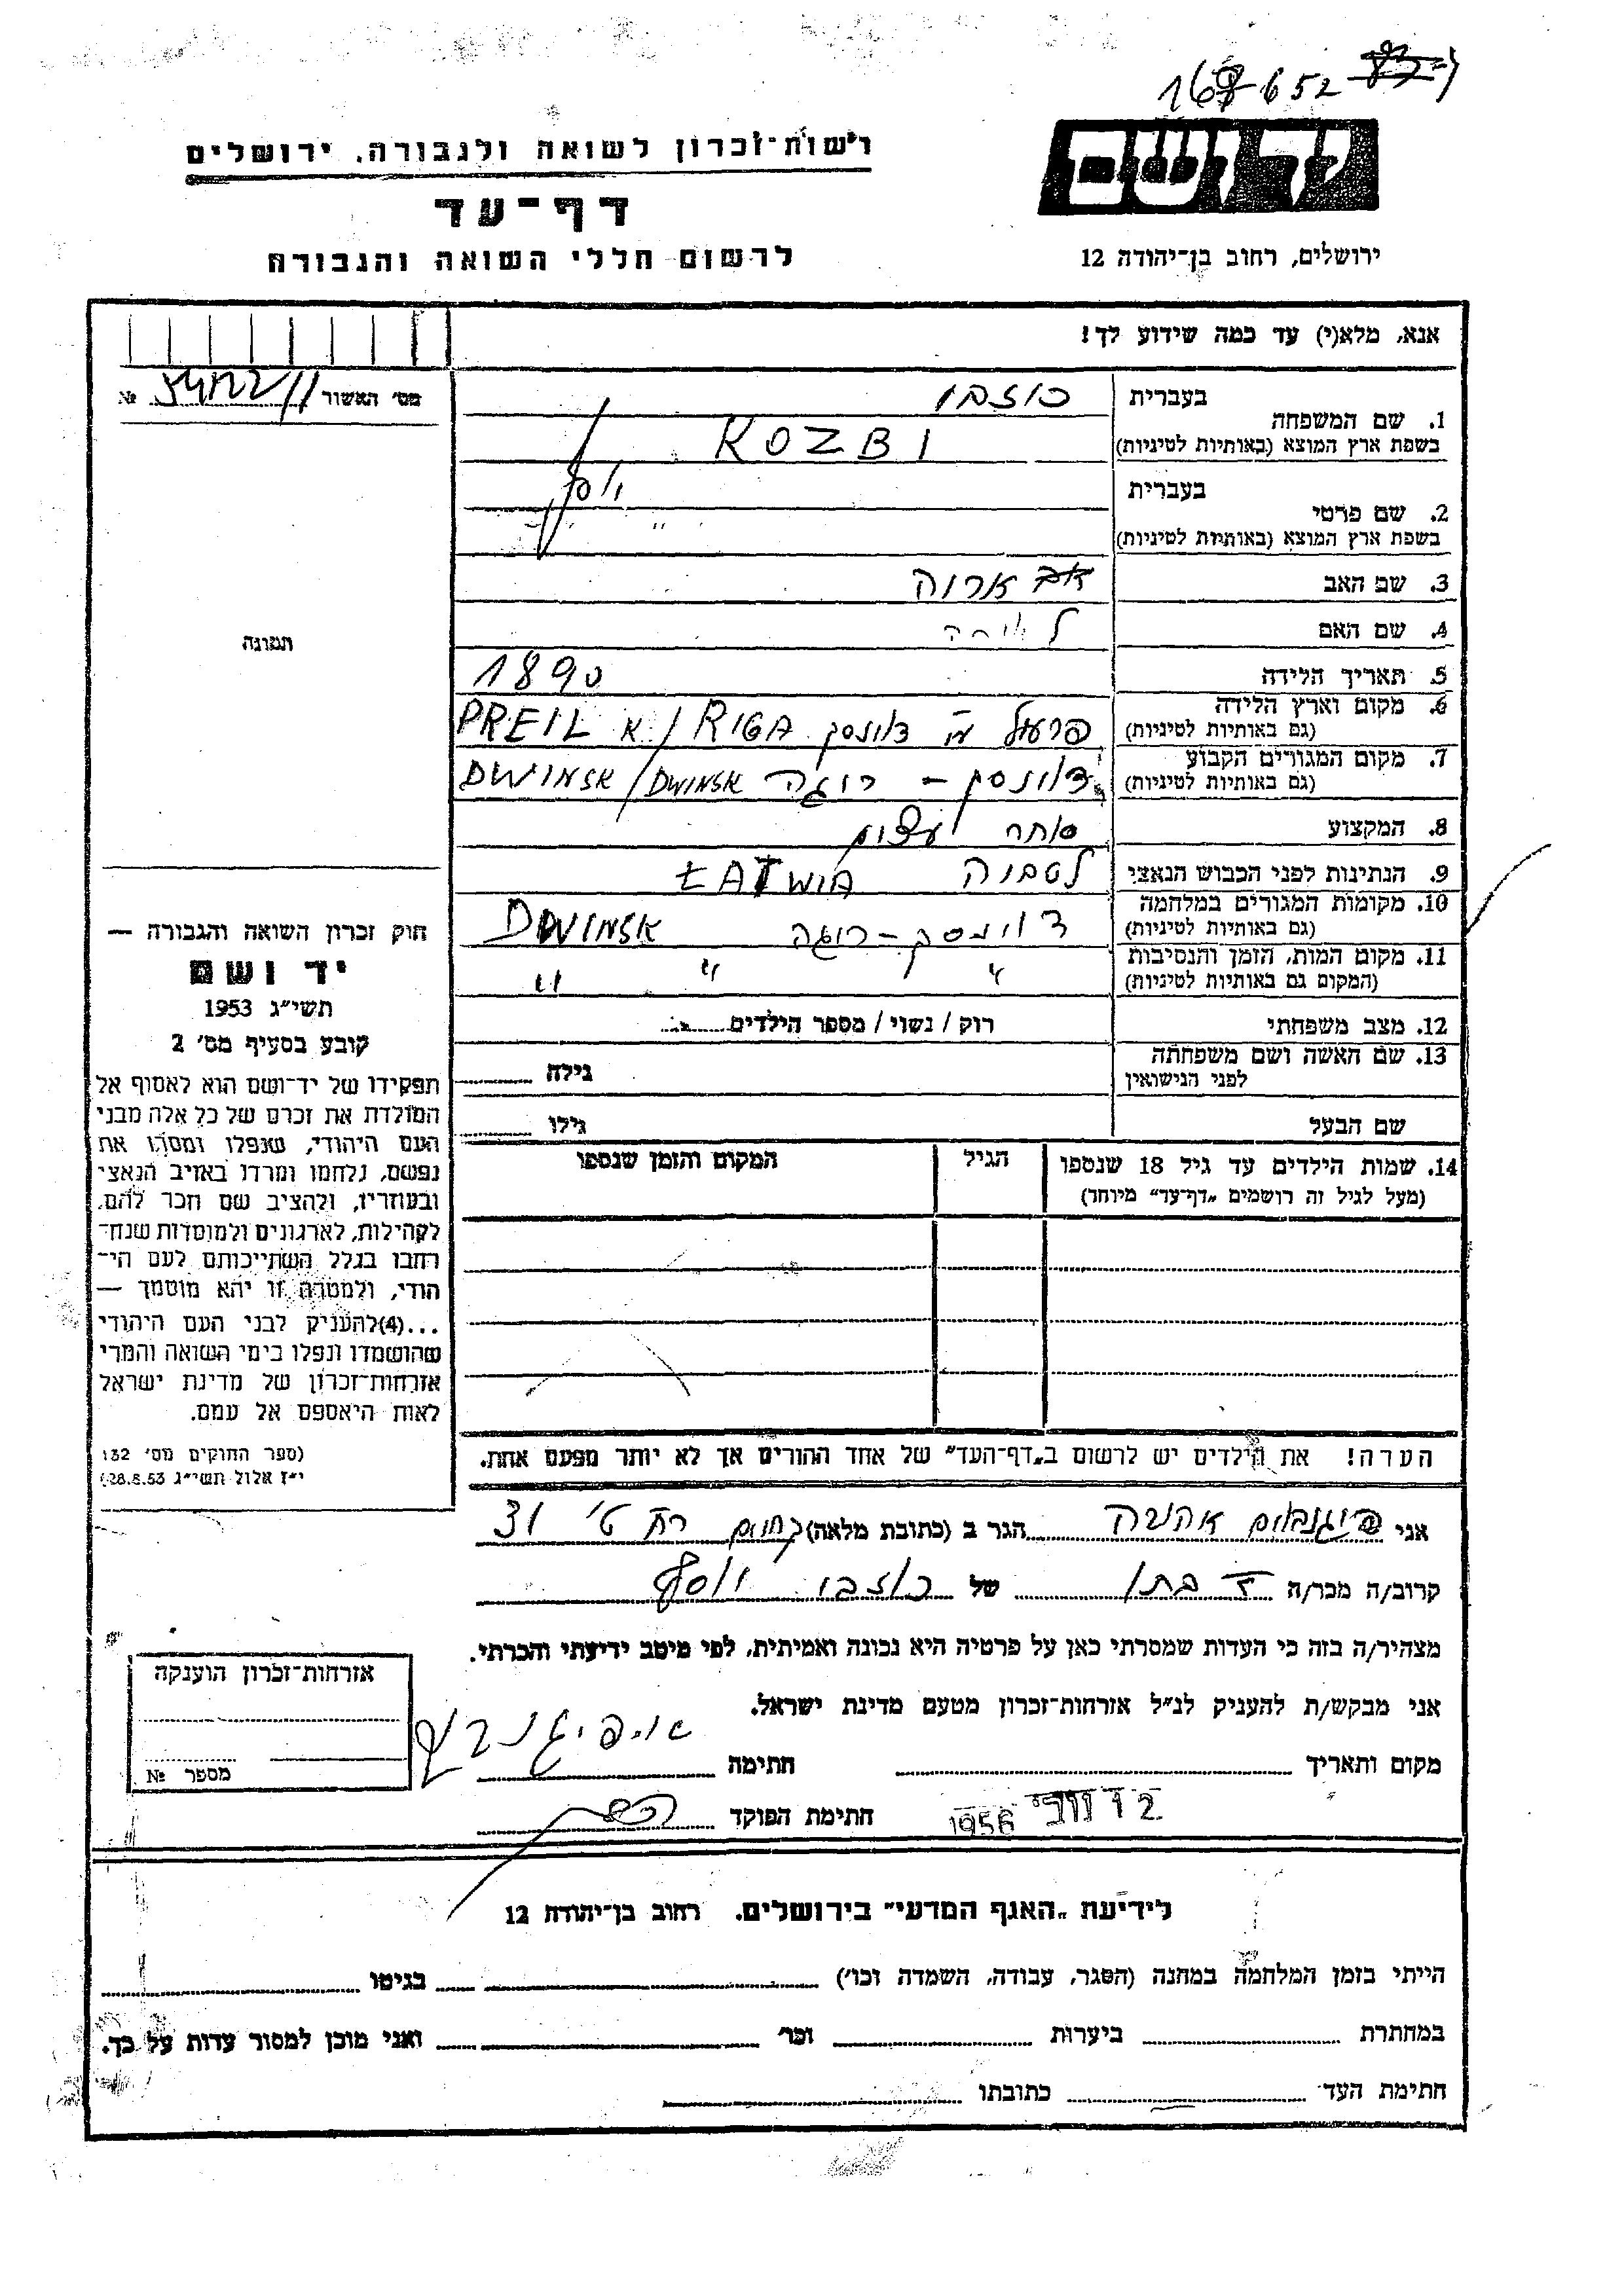 652
רשות־זכרון לשואה ולגבורה, ירושלים
יד ושם
דף־עד
לרשום חללי השואה והגבורה
ירושלים, רחוב בן־יהודה 12
אנא, מלא(י) עד כמה שידוע לך!
מס׳ האשור №
1. שם המשפחה
בעברית כוזבי
בשפת ארץ המוצא (באותיות לטיניות) KOZBI
2. שם פרטי
בעברית יוסף
בשפת ארץ המוצא (באותיות לטיניות) " "
3. שם האב
4. שם האם
5. תאריך הלידה 1890
6. מקום וארץ הלידה
(גם באותיות לטיניות) דוינסק PREIL / RIGA
7. מקום המגורים הקבוע
(גם באותיות לטיניות) דוינסק – ריגה DWINSK / DWINSK
8. המקצוע סוחר עצים
9. הנתינות לפני הכבוש הנאצי לטביה ŁATWIA
10. מקומות המגורים במלחמה
(גם באותיות לטיניות) דוינסק – ריגה DWINSK
11. מקום המות, הזמן והנסיבות
(המקום גם באותיות לטיניות) " " "
12. מצב משפחתי רוק / נשוי / מספר הילדים
13. שם האשה ושם משפחתה
לפני הנישואין גילה
שם הבעל גילו
14. שמות הילדים עד גיל 18 שנספו
(מעל לגיל זה רושמים „דף־עד" מיוחד)
הגיל
המקום והזמן שנספו
הערה! את הילדים יש לרשום ב„דף־העד" של אחד ההורים אך לא יותר מפעם אחת.
תמונה
חוק זכרון השואה והגבורה —
יד ושם
תשי״ג 1953
קובע בסעיף מס׳ 2
תפקידו של יד־ושם הוא לאסוף אל
המולדת את זכרם של כל אלה מבני
העם היהודי, שנפלו ומסרו את
נפשם, נלחמו ומרדו באויב הנאצי
ובעוזריו, ולהציב שם וזכר להם,
לקהילות, לארגונים ולמוסדות שנח־
רחבו בגלל השתייכותם לעם הי־
הודי, ולמטרה זו יהא מוסמך —
...(4)להעניק לבני העם היהודי
שהושמדו ונפלו בימי השואה והמרי
אזרחות־זכרון של מדינת ישראל
לאות היאספם אל עמם.
(ספר החוקים מס׳ 132
י״ז אלול תשי״ג 28.8.53)
אני הגר ב (כתובת מלאה) 31
קרוב/ה מכר/ה בתו של כוזבי יוסף
מצהיר/ה בזה כי העדות שמסרתי כאן על פרטיה היא נכונה ואמיתית, לפי מיטב ידיעתי והכרתי.
אני מבקש/ת להעניק לנ״ל אזרחות־זכרון מטעם מדינת ישראל.
מקום ותאריך חתימה
12 נוב׳ 1956 חתימת הפוקד
אזרחות־זכרון הוענקה
מספר №
לידיעת „האגף המדעי" בירושלים. רחוב בן־יהודה 12
הייתי בזמן המלחמה במחנה (הסגר, עבודה, השמדה וכו׳) בגיטו
במחתרת ביערות וכו׳ ואני מוכן למסור עדות על כך.
חתימת העד כתובתו